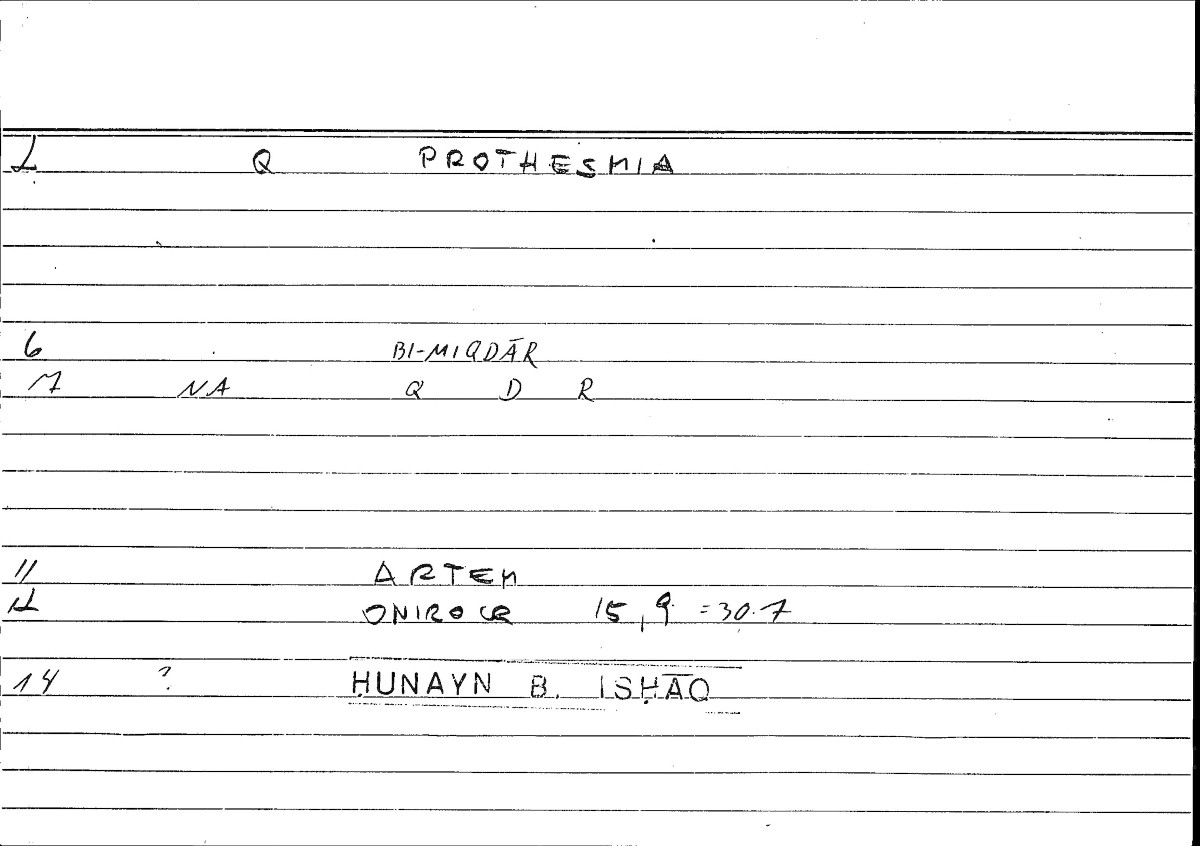 1 Q PROTHESMIA
6 BI-MIQDĀR
7 NA Q D R
11 ARTEM
12 ONIROCR 15,9 =30.7
14 ? ḤUNAYN B. ISḤĀQ